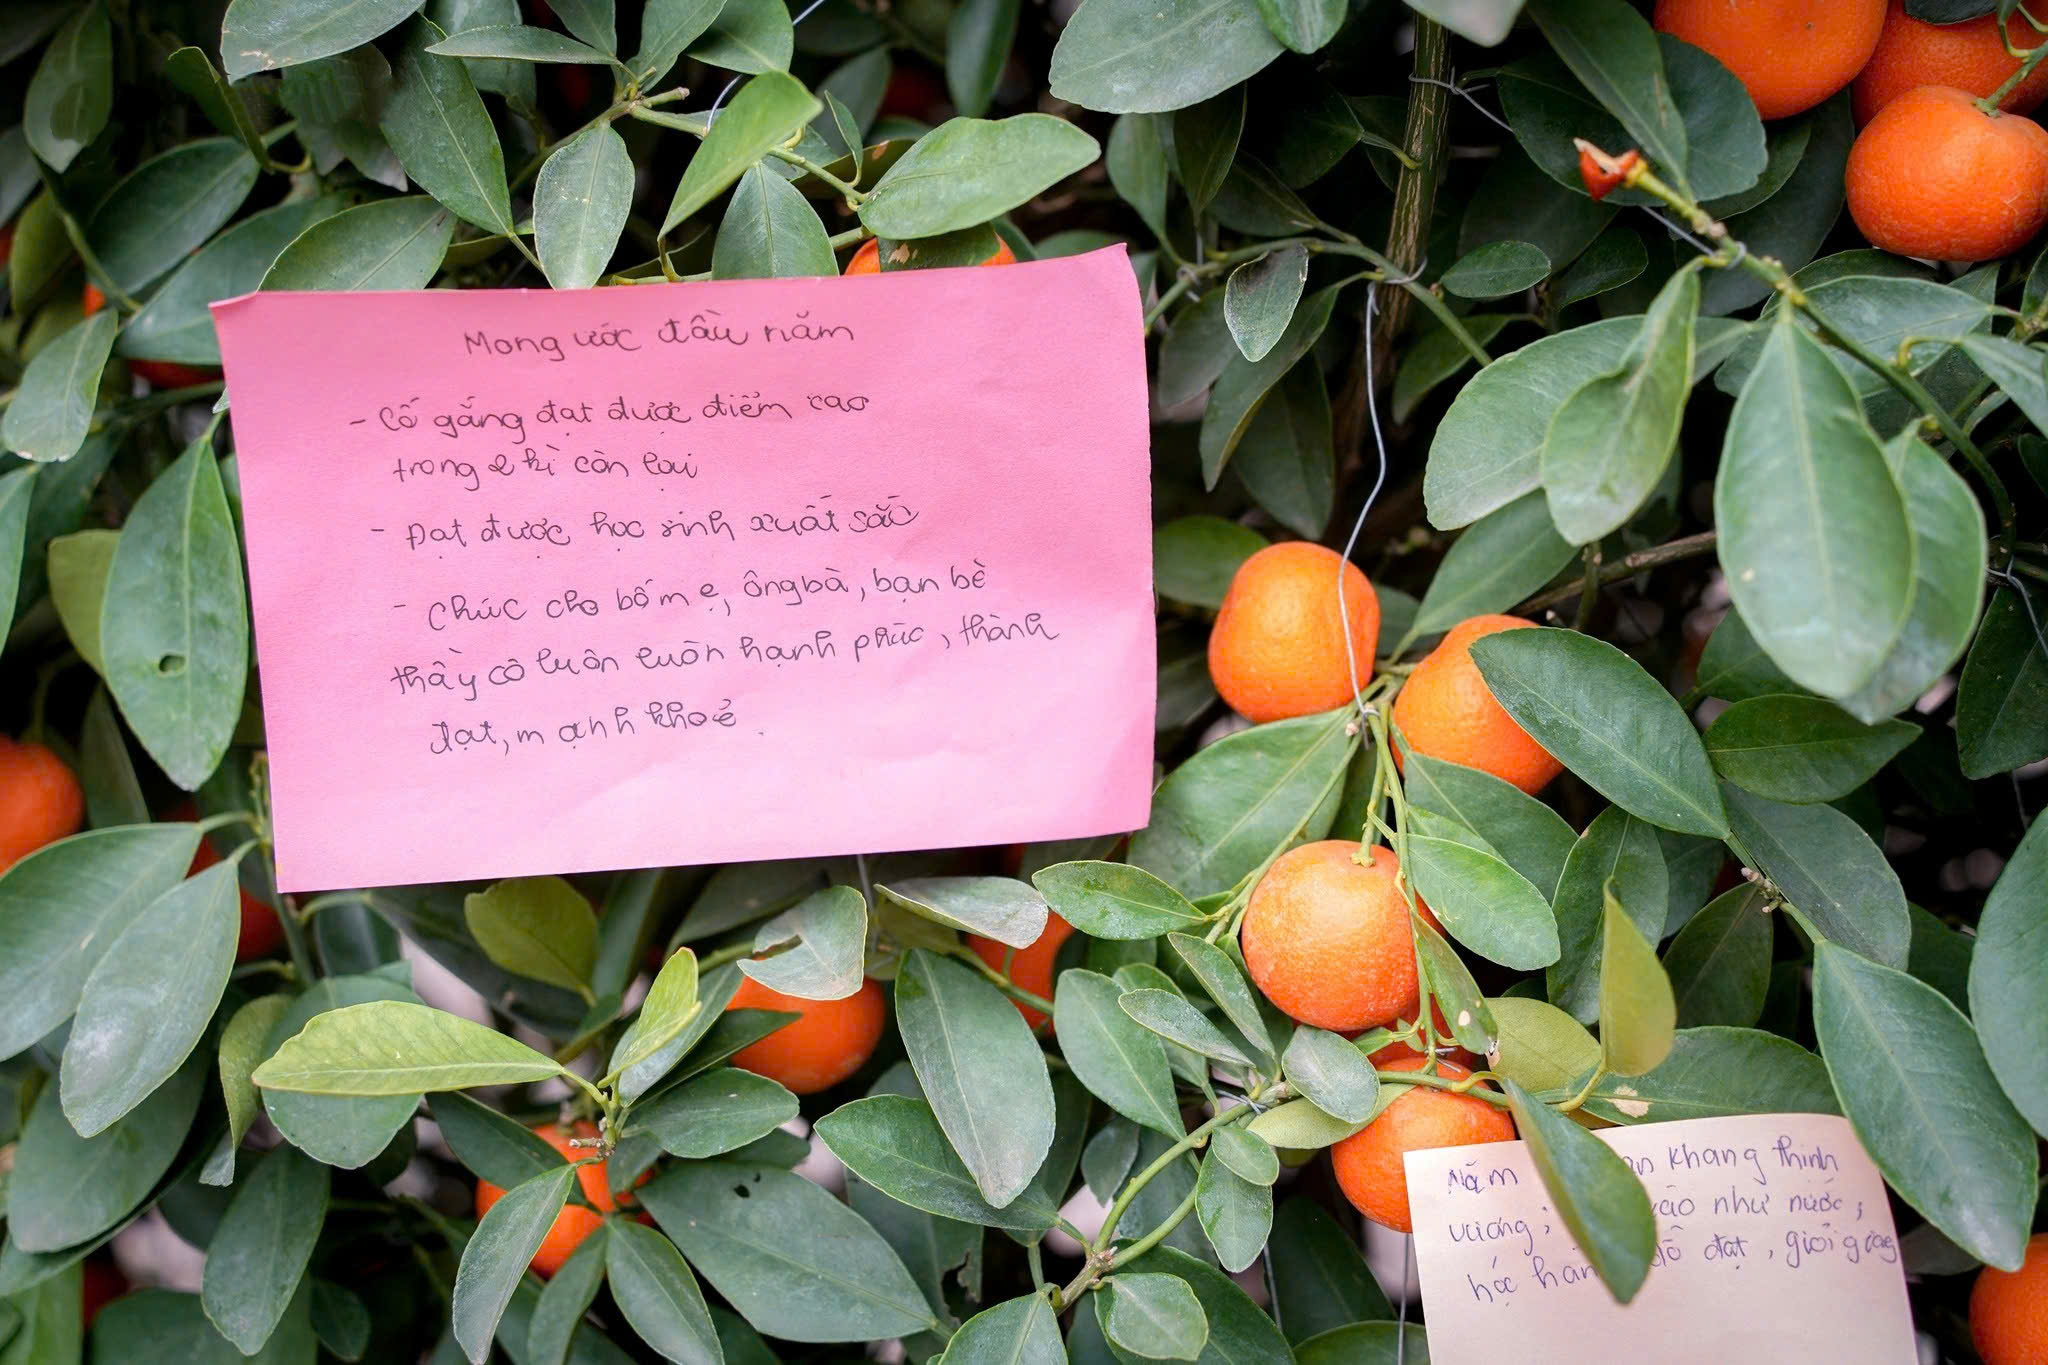 Mong ước đầu năm
- Cố gắng đạt được điểm cao
trong 2 kì còn lại
- Đạt được học sinh xuất sắc
- Chúc cho bố mẹ, ông bà, bạn bè
thầy cô luôn luôn hạnh phúc, thành
đạt, mạnh khoẻ.
Năm khang thịnh
vượng; vào như nước,
học hành đỗ đạt, giỏi giang